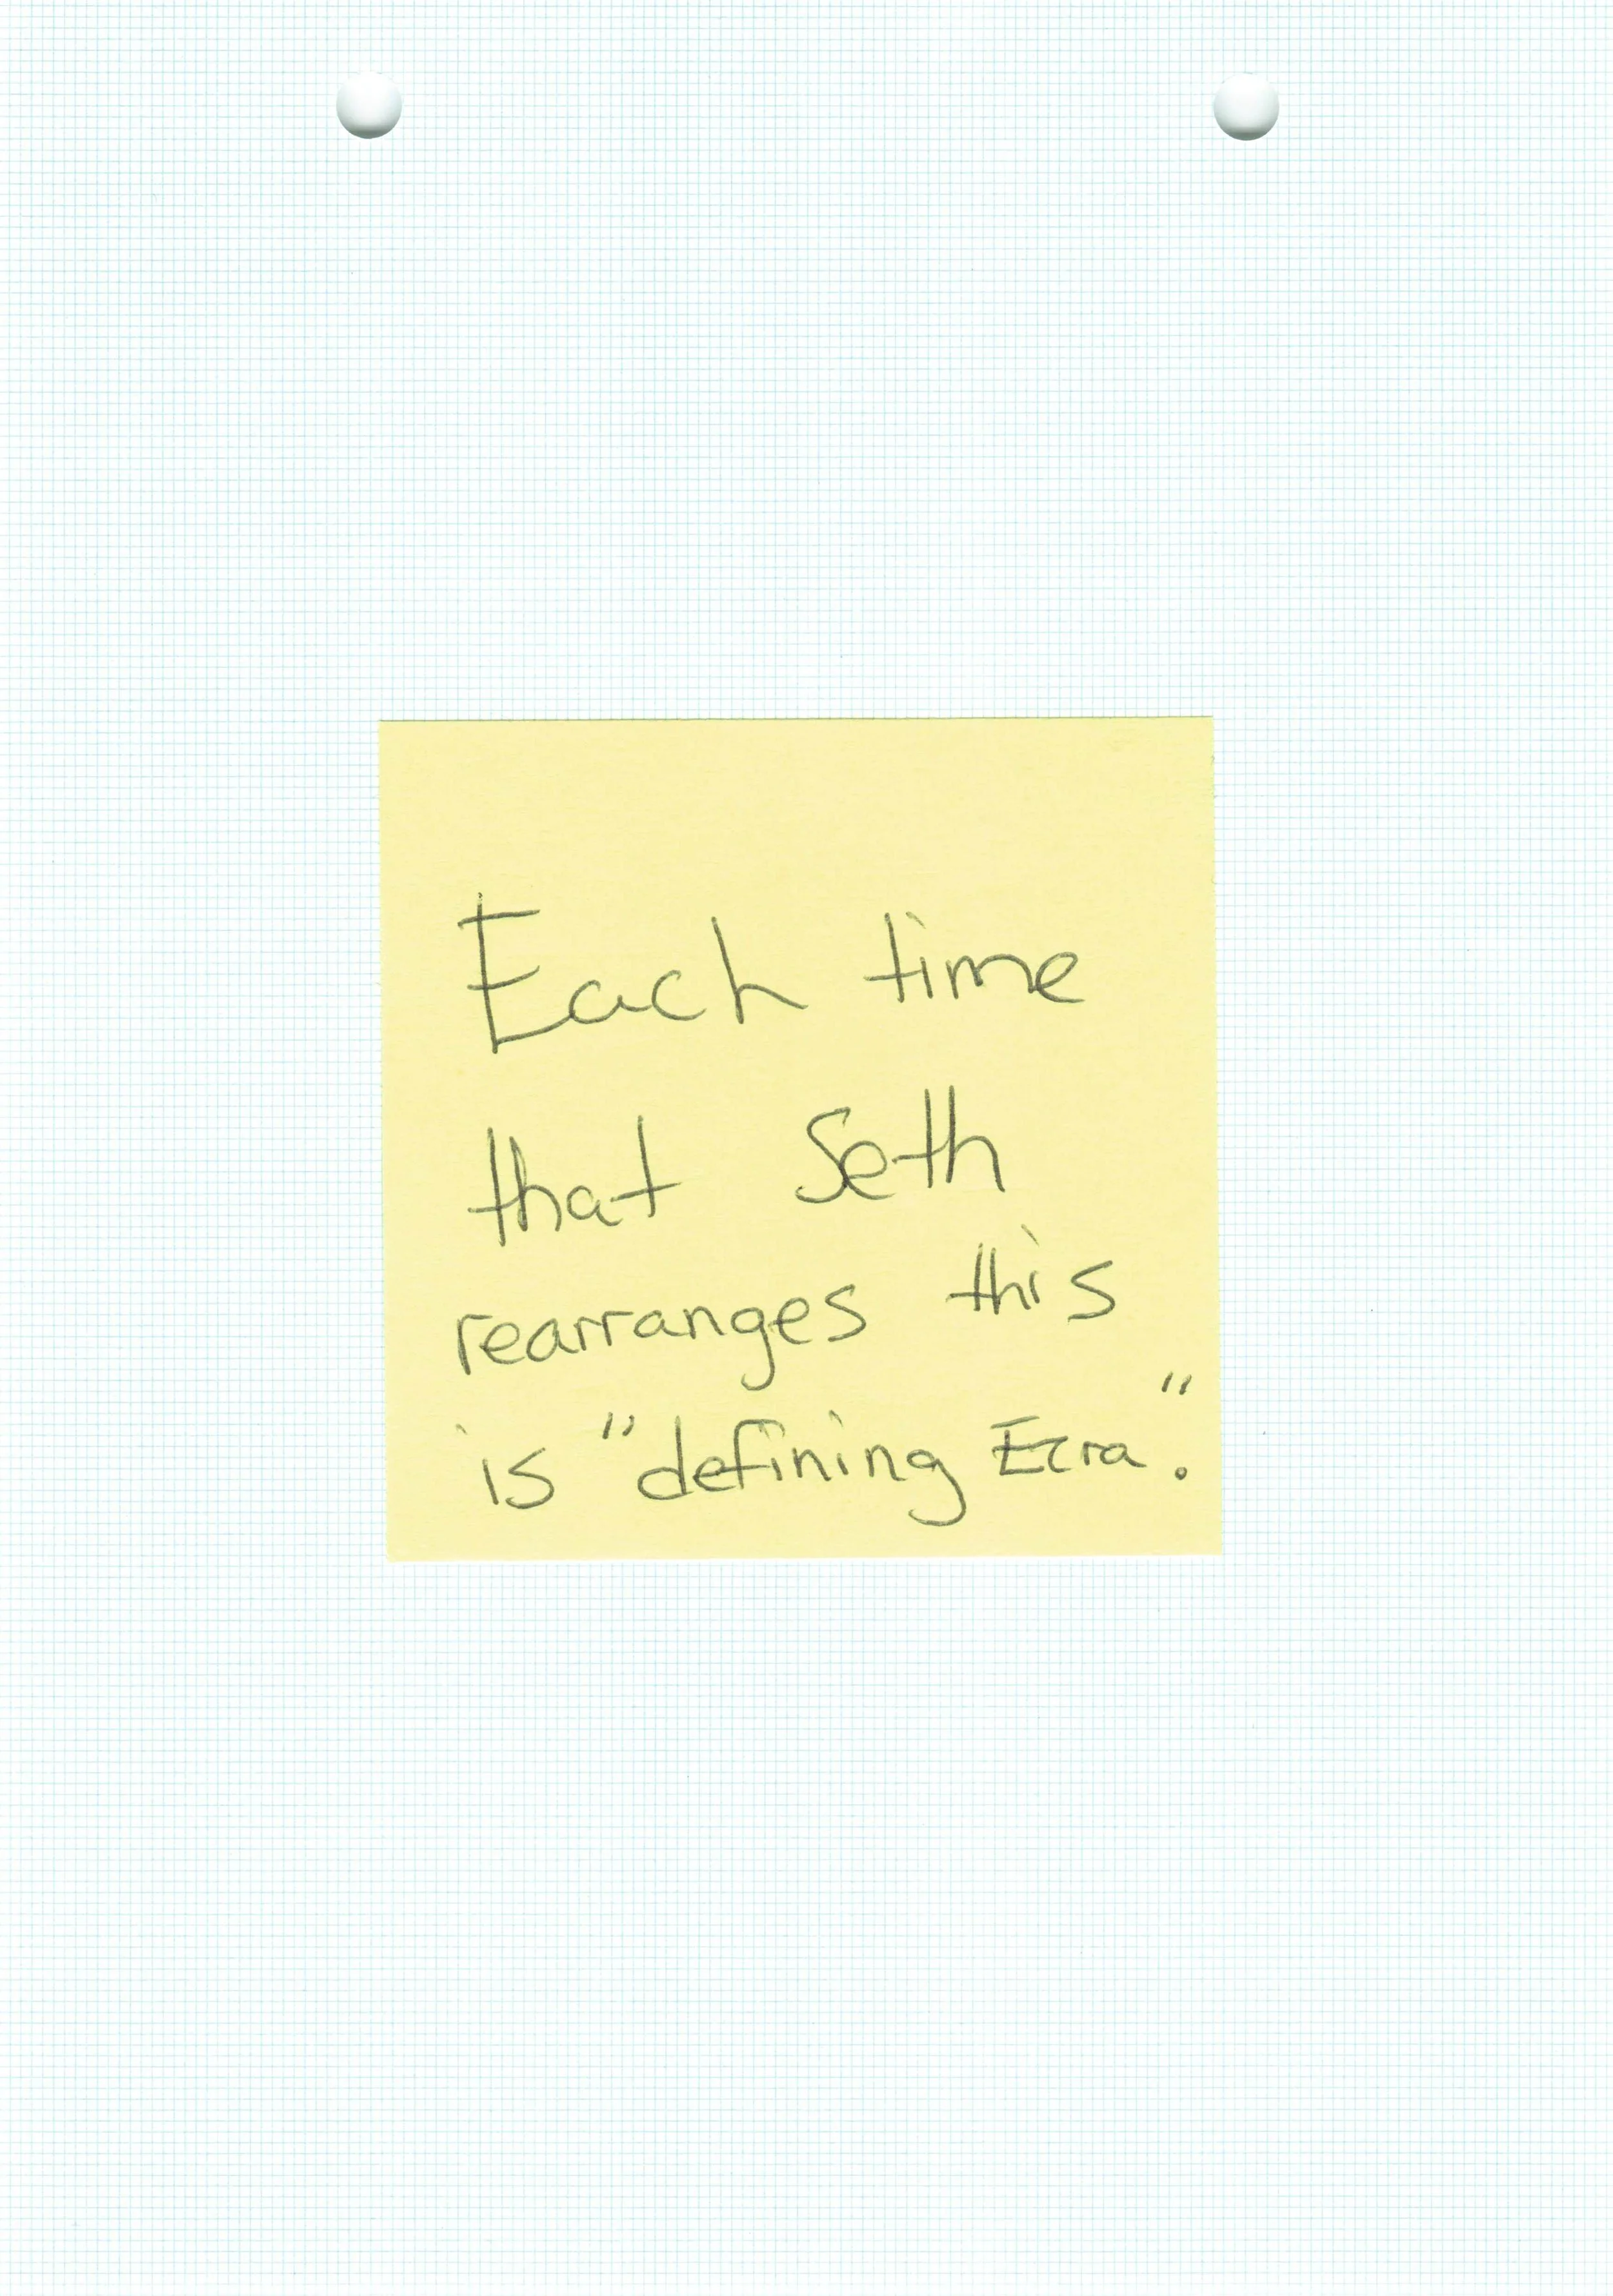 Each time
that Seth
rearranges this
is "defining Ecra."